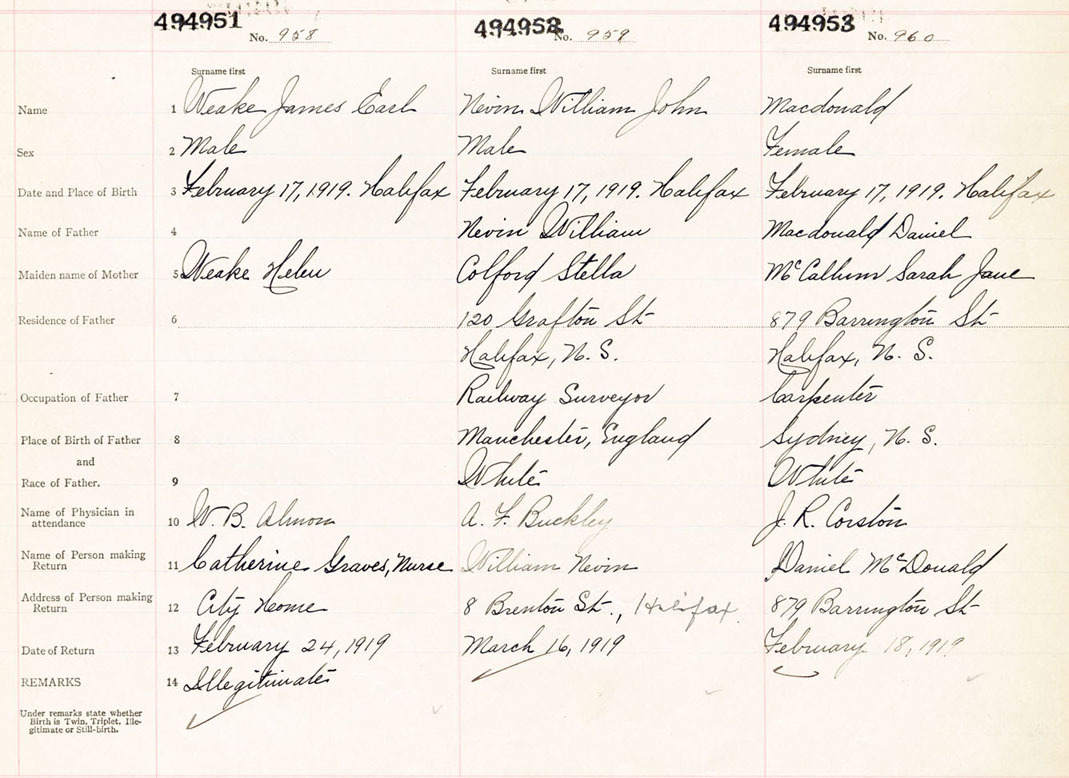 494951 494952 494953
No. 958 No. 959 No. 960
Surname first Surname first Surname first
Name 1 Weake James Earl Nevin William John Macdonald
Sex 2 Male Male Female
Date and Place of Birth 3 February 17, 1919. Halifax February 17, 1919. Halifax February 17, 1919. Halifax
Name of Father 4 Nevin William Macdonald Daniel
Maiden name of Mother 5 Weake Helen Colford Stella McCallum Sarah Jane
Residence of Father 6 120 Grafton St 879 Barrington St
Halifax, N. S. Halifax, N. S.
Occupation of Father 7 Railway Surveyor Carpenter
Place of Birth of Father 8 Manchester, England Sydney, N. S.
and
Race of Father. 9 White White
Name of Physician in
attendance 10 W. B. Almon A. F. Buckley J. R. Corston
Name of Person making
Return 11 Catherine Graves, Nurse William Nevin Daniel McDonald
Address of Person making
Return 12 City Home 8 Brenton St., Halifax. 879 Barrington St
Date of Return 13 February 24, 1919 March 16, 1919 February 18, 1919
REMARKS 14 Illegitimate
Under remarks state whether
Birth is Twin, Triplet, Ille-
gitimate or Still-birth.